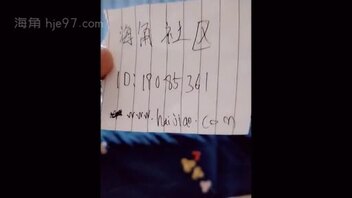 海角 hje97.com
海角社区
ID:19085361
www.haijiao.com